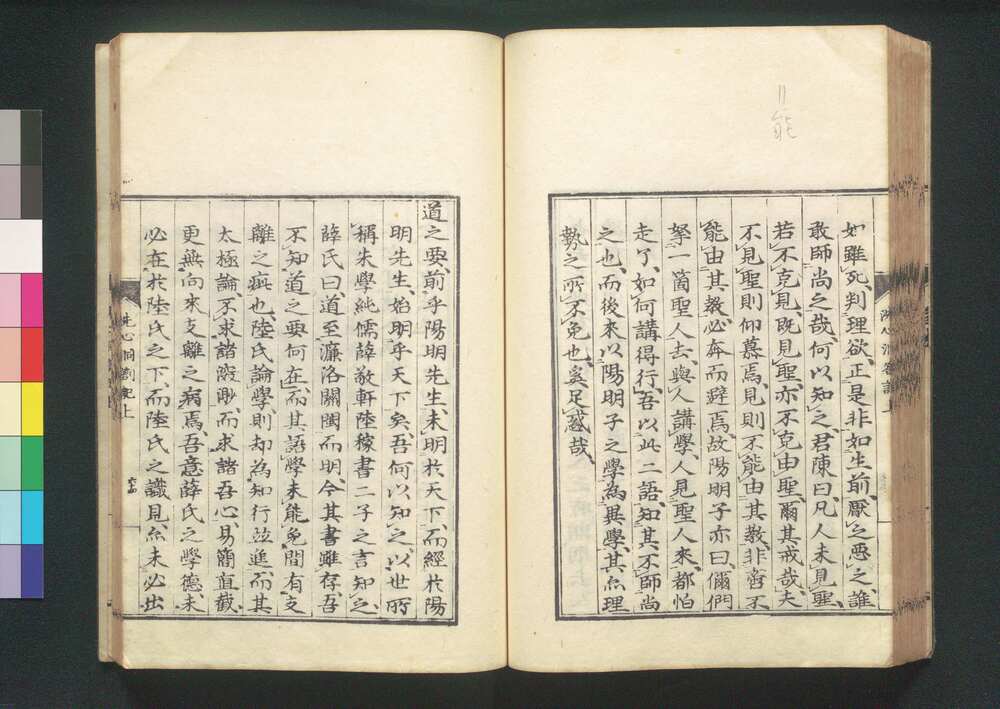 〃能
如雖死判理欲、正是非如生前、厭之惡之、誰
敢師尚之哉、何以知之、君陳曰、凡人未見聖、
若不克見、既見聖、亦不克由聖、爾其戒哉、夫
不見聖則仰慕焉、見則不能由其教、非啻不
能由其教、必奔而避焉、故陽明子亦曰、儞們
拏一箇聖人去、與人講學、人見聖人來、都怕
走了、如何講得行、吾以此二語、知其不師尚
之也、而後來以陽明子之學為異學、其亦理
勢之所不免也、奚足惑哉、
道之要、前乎陽明先生、未明於天下、而經於陽
明先生、始明乎天下矣、吾何以知之、以世所
稱朱學純儒薛敬軒陸稼書二子之言知之、
薛氏曰、道至濂洛關閩而明、今其書雖存、吾
不知道之要何在、而其語學未能免間有支
離之病也、陸氏論學、則却為知行並進、而其
太極論、不求諸渺、而求諸吾心、易簡直截、
更無向來支離之病焉、吾意薛氏之學德、未
必在於陸氏之下、而陸氏之識見、亦未必出
洗心洞劄記上